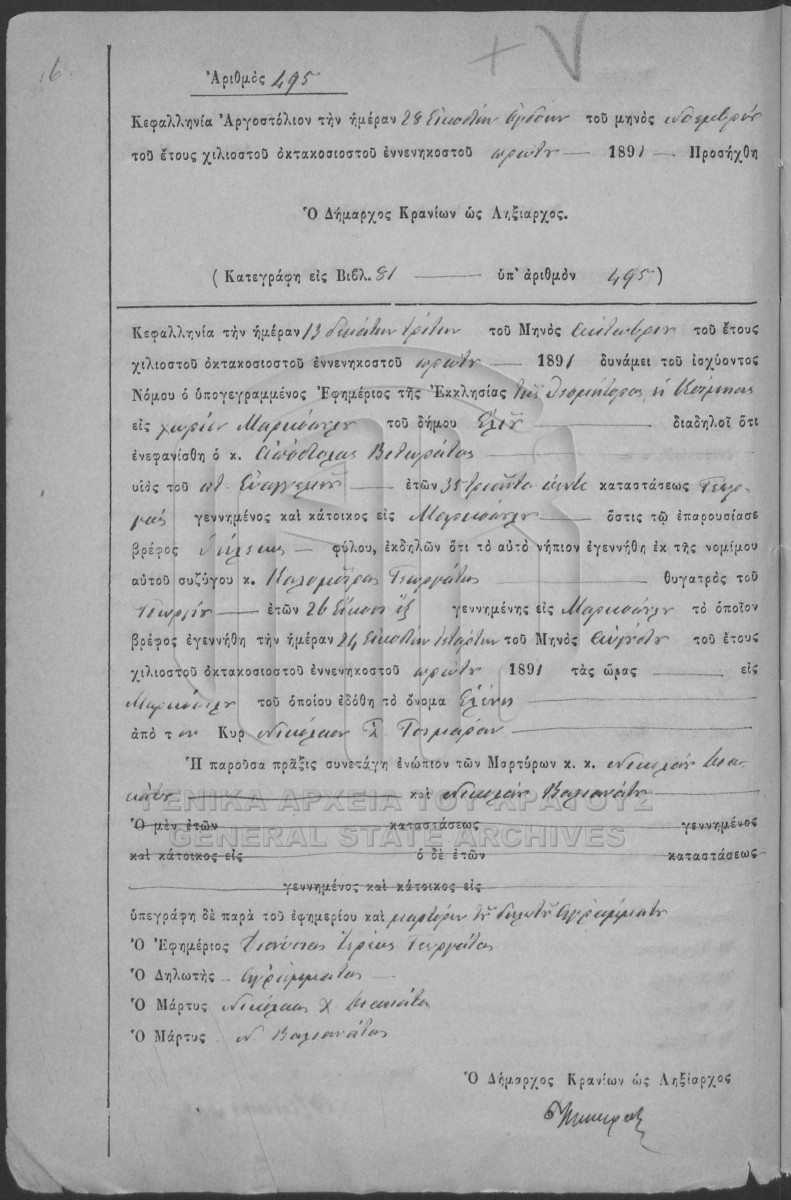 Ἀριθμὸς 495
Κεφαλληνία Ἀργοστόλιον τὴν ἡμέραν 28 Εἰκοστὴν ὀγδόην τοῦ μηνὸς Νοεμβρίου
τοῦ ἔτους χιλιοστοῦ ὀκτακοσιοστοῦ ἐννενηκοστοῦ πρώτου 1891 Προσήχθη
Ὁ Δήμαρχος Κρανίων ὡς Ληξίαρχος.
(Κατεγράφη εἰς Βιβλ. 81 ὑπ' ἀριθμὸν 495)
Κεφαλληνία τὴν ἡμέραν 13 δεκάτην τρίτην τοῦ Μηνὸς Ὀκτωβρίου τοῦ ἔτους
χιλιοστοῦ ὀκτακοσιοστοῦ ἐννενηκοστοῦ πρώτου 1891 δυνάμει τοῦ ἰσχύοντος
Νόμου ὁ ὑπογεγραμμένος Ἐφημέριος τῆς Ἐκκλησίας τῆς Θεομήτορος ἡ Κοίμησις
εἰς χωρίον Μαρκόπουλον τοῦ δήμου διαδηλοῖ ὅτι
ἐνεφανίσθη ὁ κ. Ἀπόστολος Βετωράτος
υἱὸς τοῦ ποτ. Εὐαγγελινοῦ ἐτῶν 35 τριάντα πέντε καταστάσεως Γεωρ-
γὸς γεννημένος καὶ κάτοικος εἰς Μαρκόπουλον ὅστις τῷ ἐπαρουσίασε
βρέφος θήλεως φύλου, ἐκδηλῶν ὅτι τὸ αὐτὸ νήπιον ἐγεννήθη ἐκ τῆς νομίμου
αὐτοῦ συζύγου κ. Καλομοίρας Γεωργάτος θυγατρὸς τοῦ
Γεωργίου ἐτῶν 26 Εἴκοσι ἕξ γεννημένης εἰς Μαρκόπουλον τὸ ὁποῖον
βρέφος ἐγεννήθη τὴν ἡμέραν 24 Εἰκοστὴν τετάρτην τοῦ Μηνὸς Αὐγούστου τοῦ ἔτους
χιλιοστοῦ ὀκτακοσιοστοῦ ἐννενηκοστοῦ πρώτου 1891 τὰς ὥρας εἰς
Μαρκόπουλον τοῦ ὁποίου ἐδόθη τὸ ὄνομα Ἑλένη
ἀπὸ τὸν Κυρ Νικόλαον
Ἡ παροῦσα πρᾶξις συνετάγη ἐνώπιον τῶν Μαρτύρων κ. κ. Νικολάου
καὶ Νικολάου Βαλιανάτου
ΓΕΝΙΚΑ ΑΡΧΕΙΑ ΤΟΥ ΚΡΑΤΟΥΣ
GENERAL STATE ARCHIVES
Ὁ μὲν ἐτῶν καταστάσεως γεννημένος
καὶ κάτοικος εἰς ὁ δὲ ἐτῶν καταστάσεως
γεννημένος καὶ κάτοικος εἰς
ὑπεγράφη δὲ παρὰ τοῦ ἐφημερίου καὶ μαρτύρων τοῦ δηλωτοῦ ἀγραμμάτου
Ὁ Ἐφημέριος ἱερεὺς Γεωργάτος
Ὁ Δηλωτής Ἀγράμματος
Ὁ Μάρτυς Νικόλαος
Ὁ Μάρτυς Ν. Βαλιανάτος
Ὁ Δήμαρχος Κρανίων ὡς Ληξίαρχος